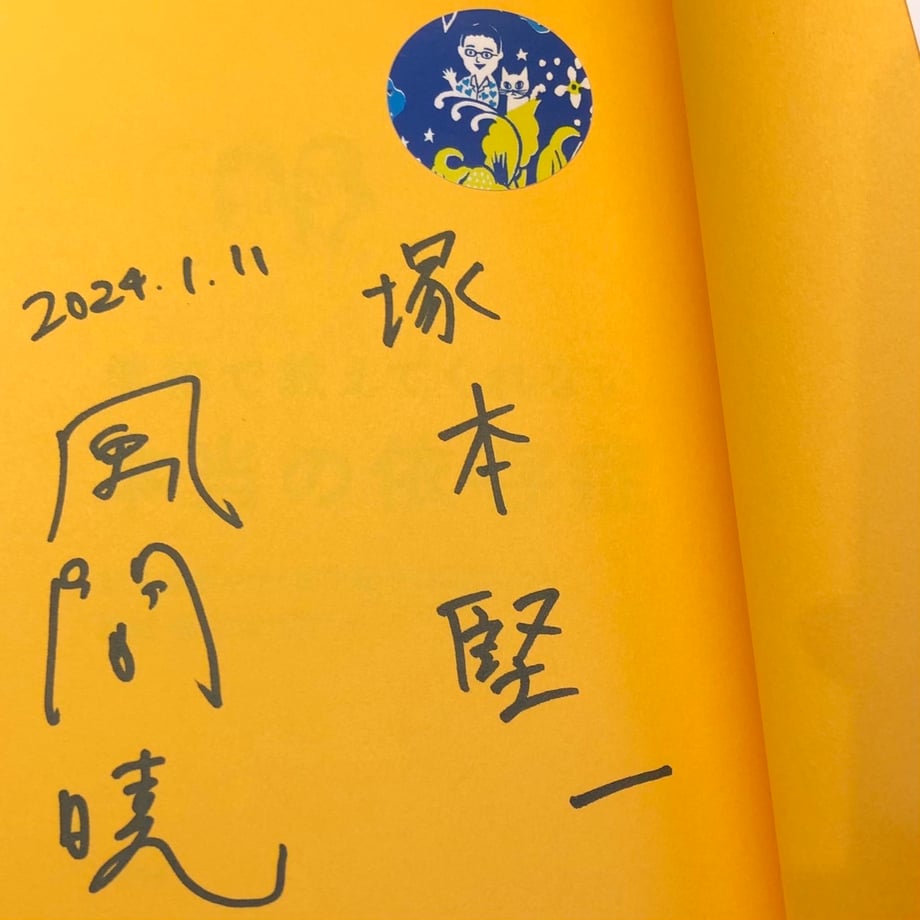 塚本堅一
2024.1.11
風間暁